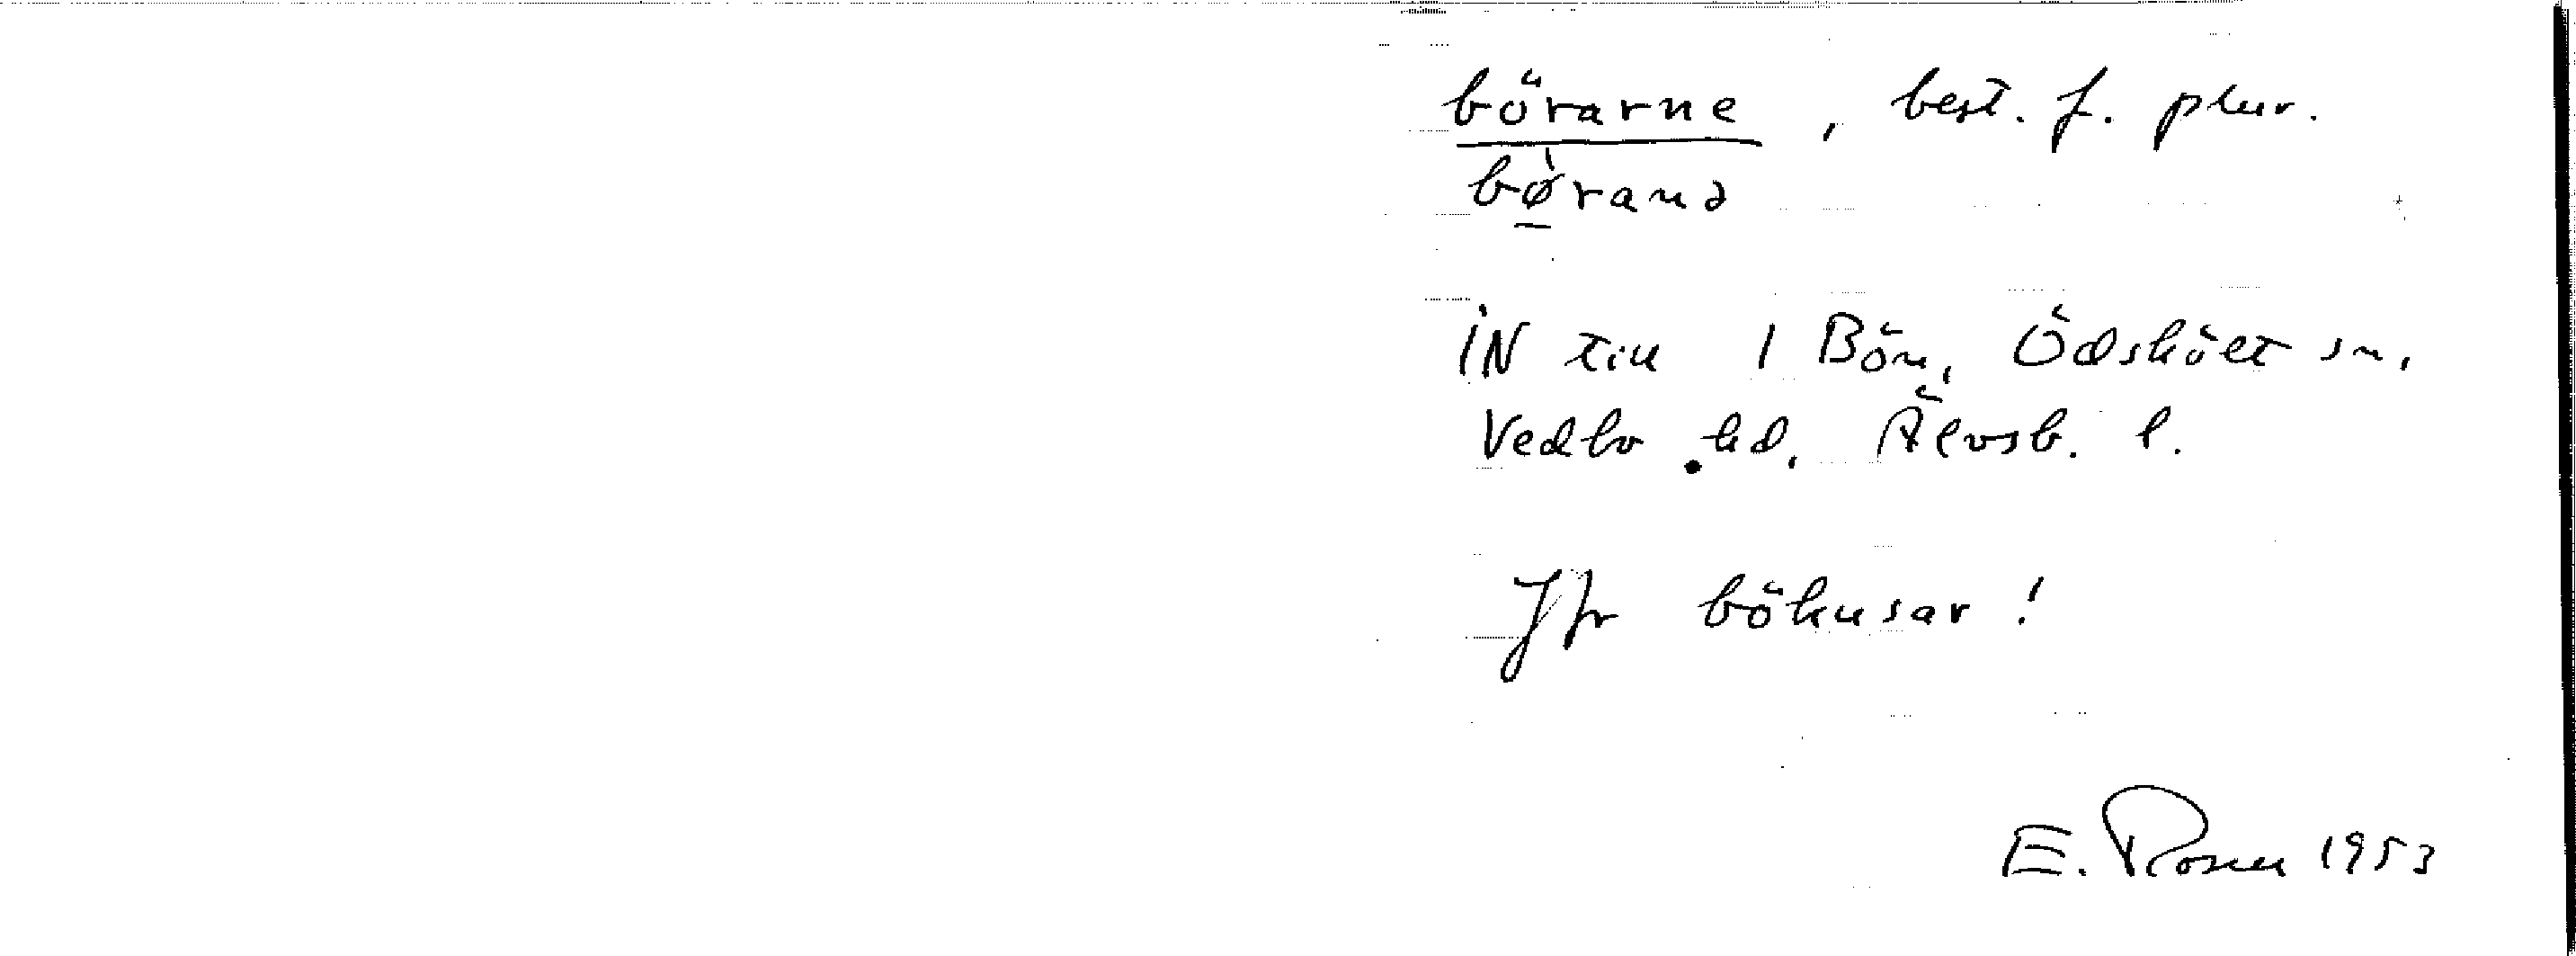 börarne, best. f. plur.
bø̀ranə
iN till 1 Bön, Ödskölt sn,
Vedbo hd, Älvsb. l.
Jfr bökusar!
E. Rosen 1953